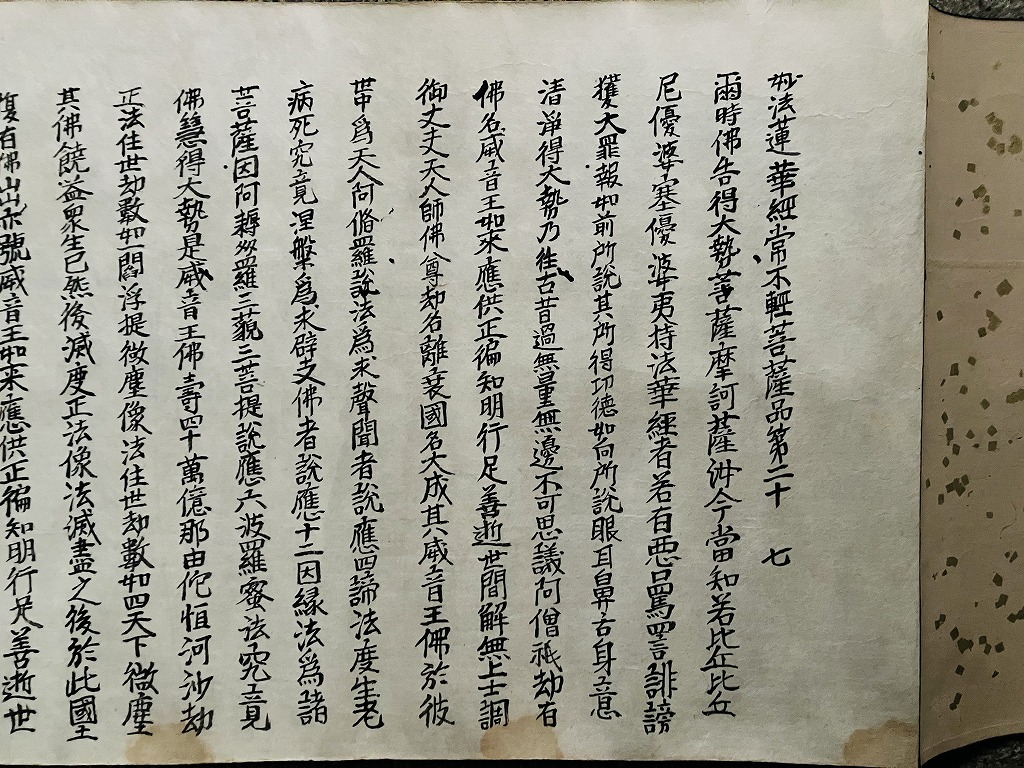 妙法蓮華經常不輕菩薩品第二十 七
爾時佛告得大勢菩薩摩訶薩汝今當知若比丘比丘
尼優婆塞優婆夷持法華經者若有惡口罵詈誹謗
獲大罪報如前所說其所得功德如向所說眼耳鼻舌身意
清淨得大勢乃往古昔過無量無邊不可思議阿僧祇劫有
佛名威音王如來應供正徧知明行足善逝世間解無上士調
御丈丈天人師佛尊劫名離衰國名大成其威音王佛於彼
世中為天人阿脩羅說法為求聲聞者說應四諦法度生老
病死究竟涅槃為求辟支佛者說應十二因緣法為諸
菩薩因阿耨多羅三藐三菩提說應六波羅蜜法究竟
佛慧得大勢是威音王佛壽四十萬億那由佗恒河沙劫
正法住世劫數如一閻浮提微塵像法住世劫數如四天下微塵
其佛饒益眾生已然後滅度正法像法滅盡之後於此國土
復有佛出亦號威音王如來應供正徧知明行足善逝世